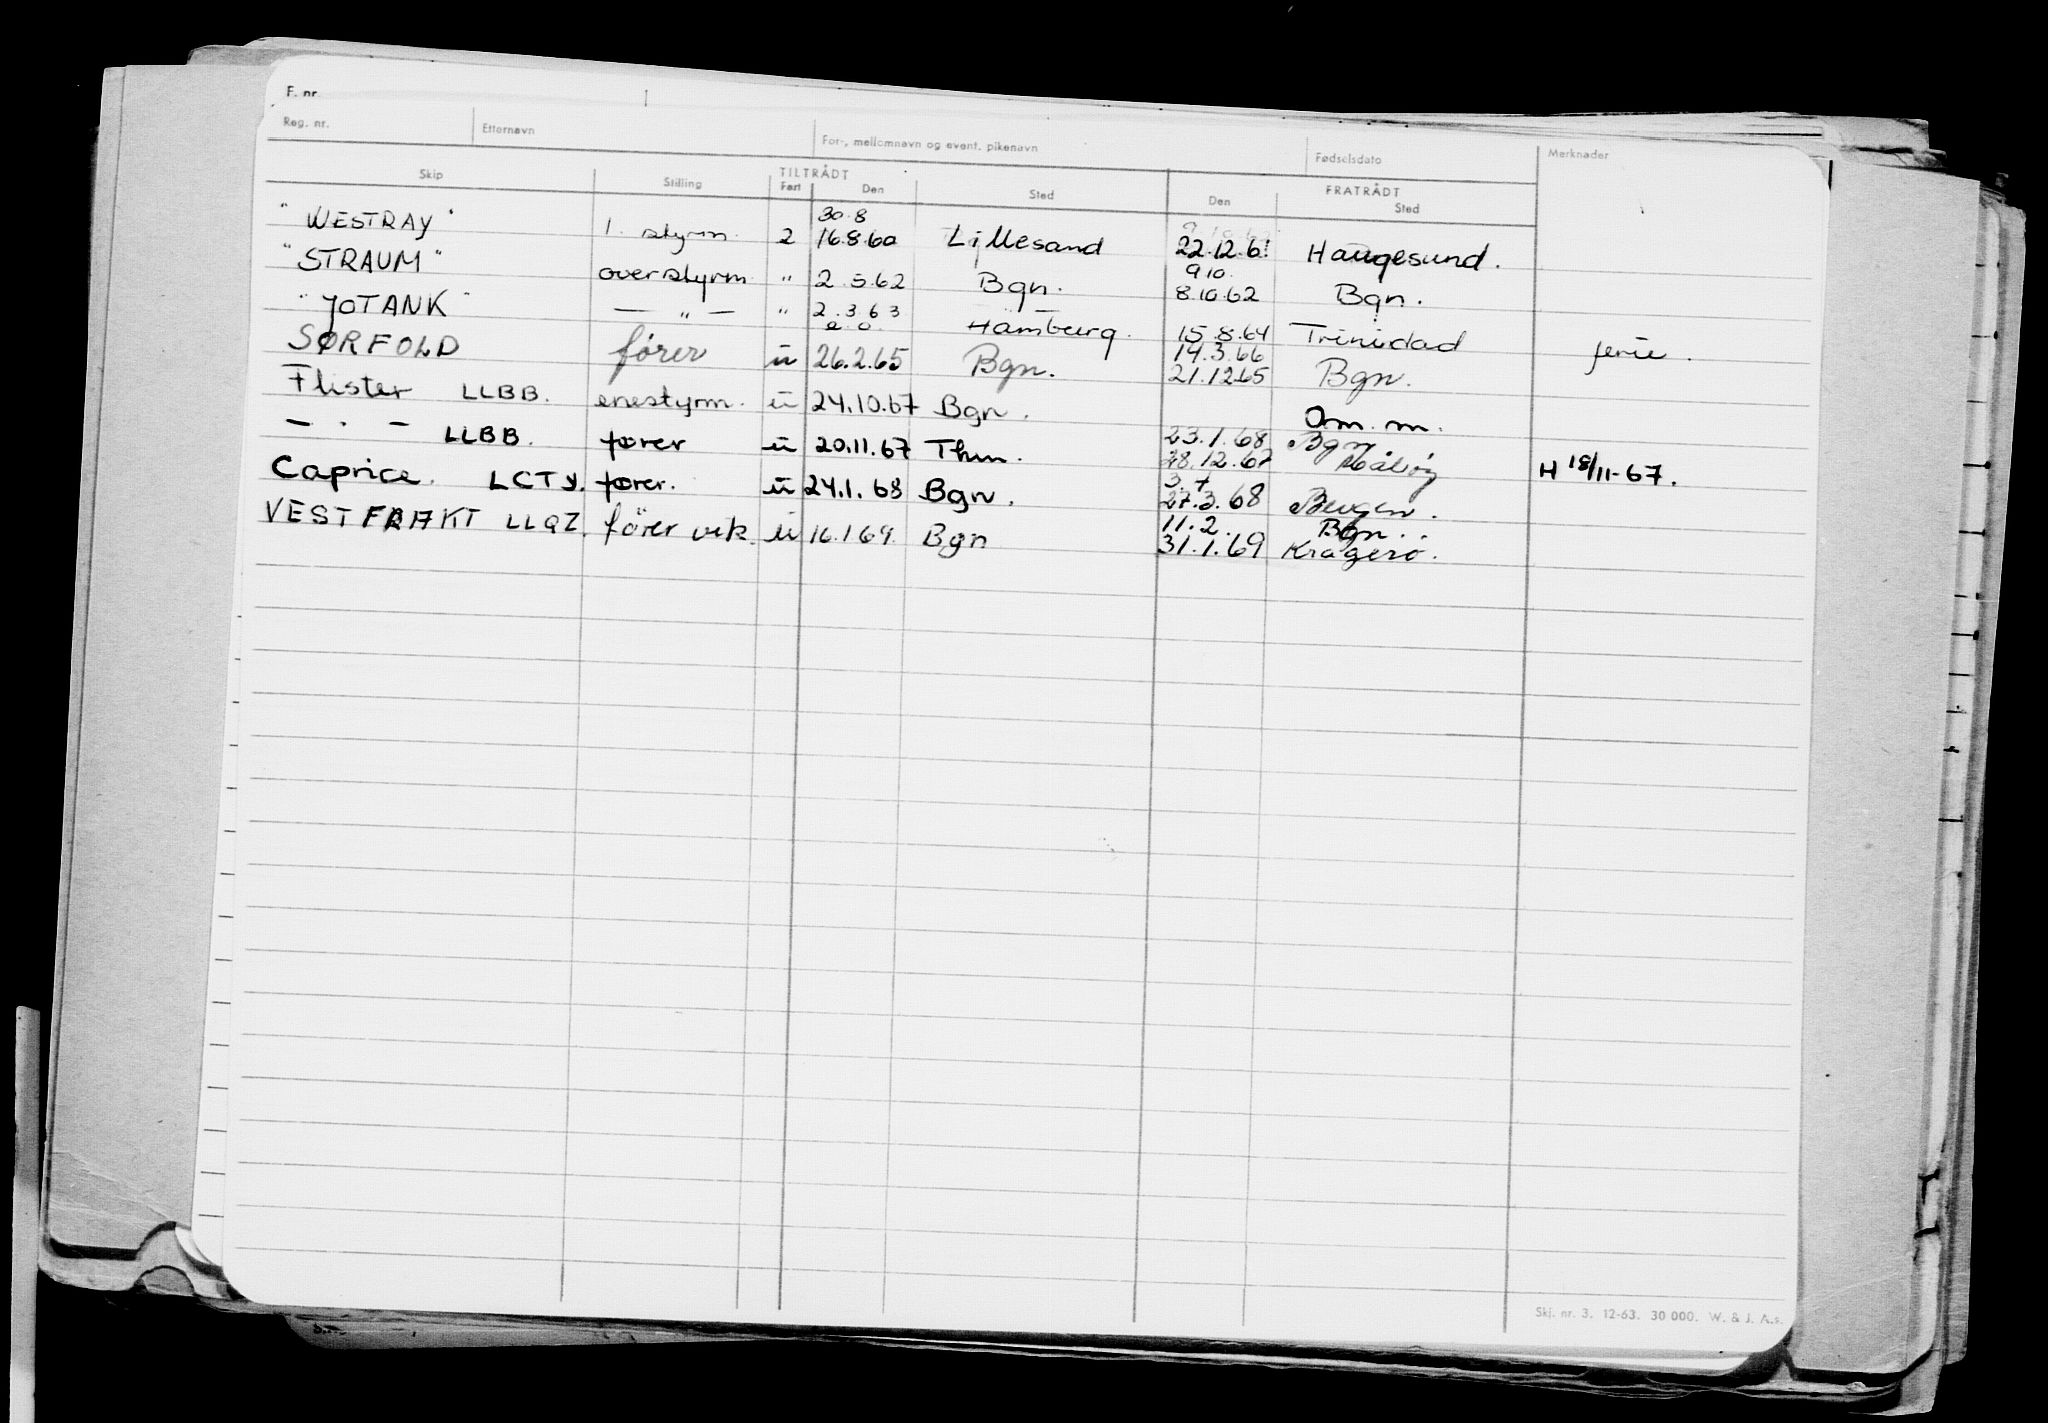 F. nr.
Reg. nr. Etternavn For-, mellomnavn og event. pikenavn Fødselsdato Merknader
Skip Stilling TILTRÅDT Fart Den Sted FRATRÅDT Den Sted
30.8
"WESTRAY" 1. styrm. 2 16.8.60 Lillesand 22.12.61 Haugesund.
9.10.
"STRAUM" overstyrm " 2.5.62 Bgn. 8.10.62 Bgn.
"JOTANK" — " — " 2.3.63 Hamburg. 15.8.64 Trinidad ferie.
14.3.66
SØRFOLD fører u 26.2.65 Bgn. 21.12.65 Bgn.
Flister LLBB. enestyrm. u 24.10.67 Bgn. Om. m.
23.1.68 Bgn
— " — LLBB. fører u 20.11.67 Thm. 28.12.67 Måløy H 18/11-67.
3.7
Caprice. LCTY. fører. u 24.1.68 Bgn. 27.3.68 Bergen.
11.2. Bgn..
VESTFRAKT LLQZ. fører vik. u 16.1.69. Bgn 31.1.69 Kragerø.
Skj. nr. 3. 12-63. 30 000. W. & J. A.s.